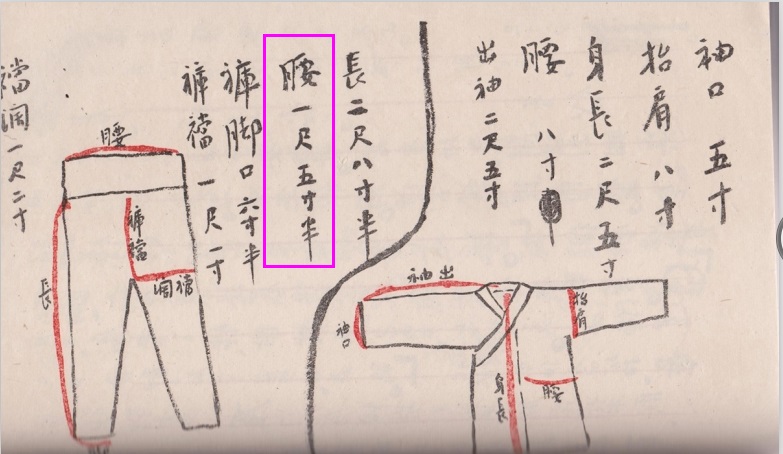 袖口 五寸
抬肩 八寸
身長 二尺五寸
腰 八寸半
出袖二尺五寸
長二尺八寸半
腰一尺五寸半
褲脚口六寸半
褲襠一尺一寸
襠濶一尺二寸
袖出
袖口
抬肩
身長
腰
腰
褲襠
濶襠
長